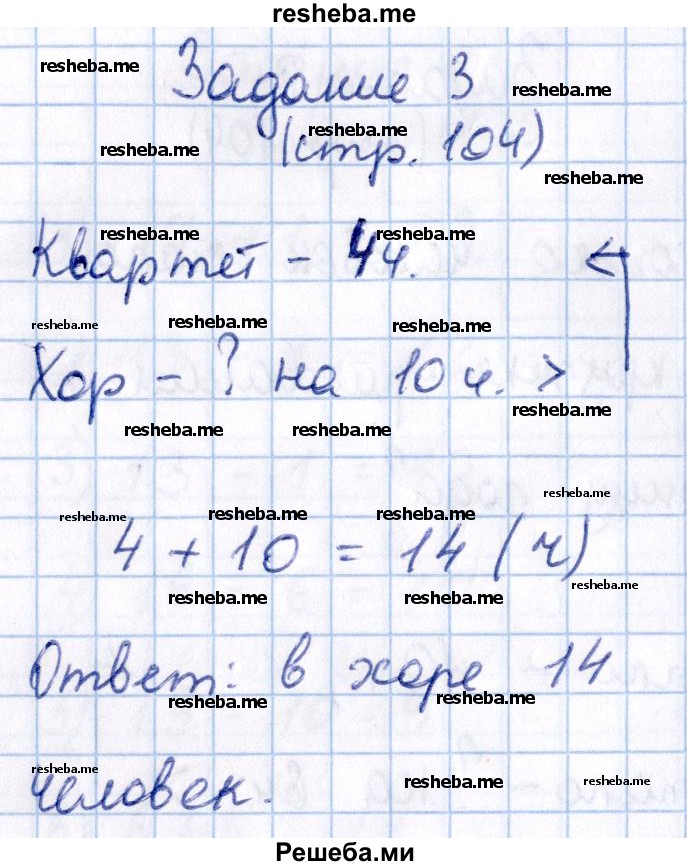 resheba.me
resheba.me
Задание 3
resheba.me
resheba.me
resheba.me
(стр. 104)
resheba.me
resheba.me resheba.me
Квартет - 4 ч.
resheba.me resheba.me resheba.me
Хор - ? на 10 ч. >
resheba.me
resheba.me resheba.me
resheba.me
resheba.me resheba.me resheba.me
4 + 10 = 14 (ч)
resheba.me
resheba.me resheba.me
Ответ: в хоре 14
resheba.me resheba.me
resheba.me
человек.
resheba.me resheba.me
Решеба.ми